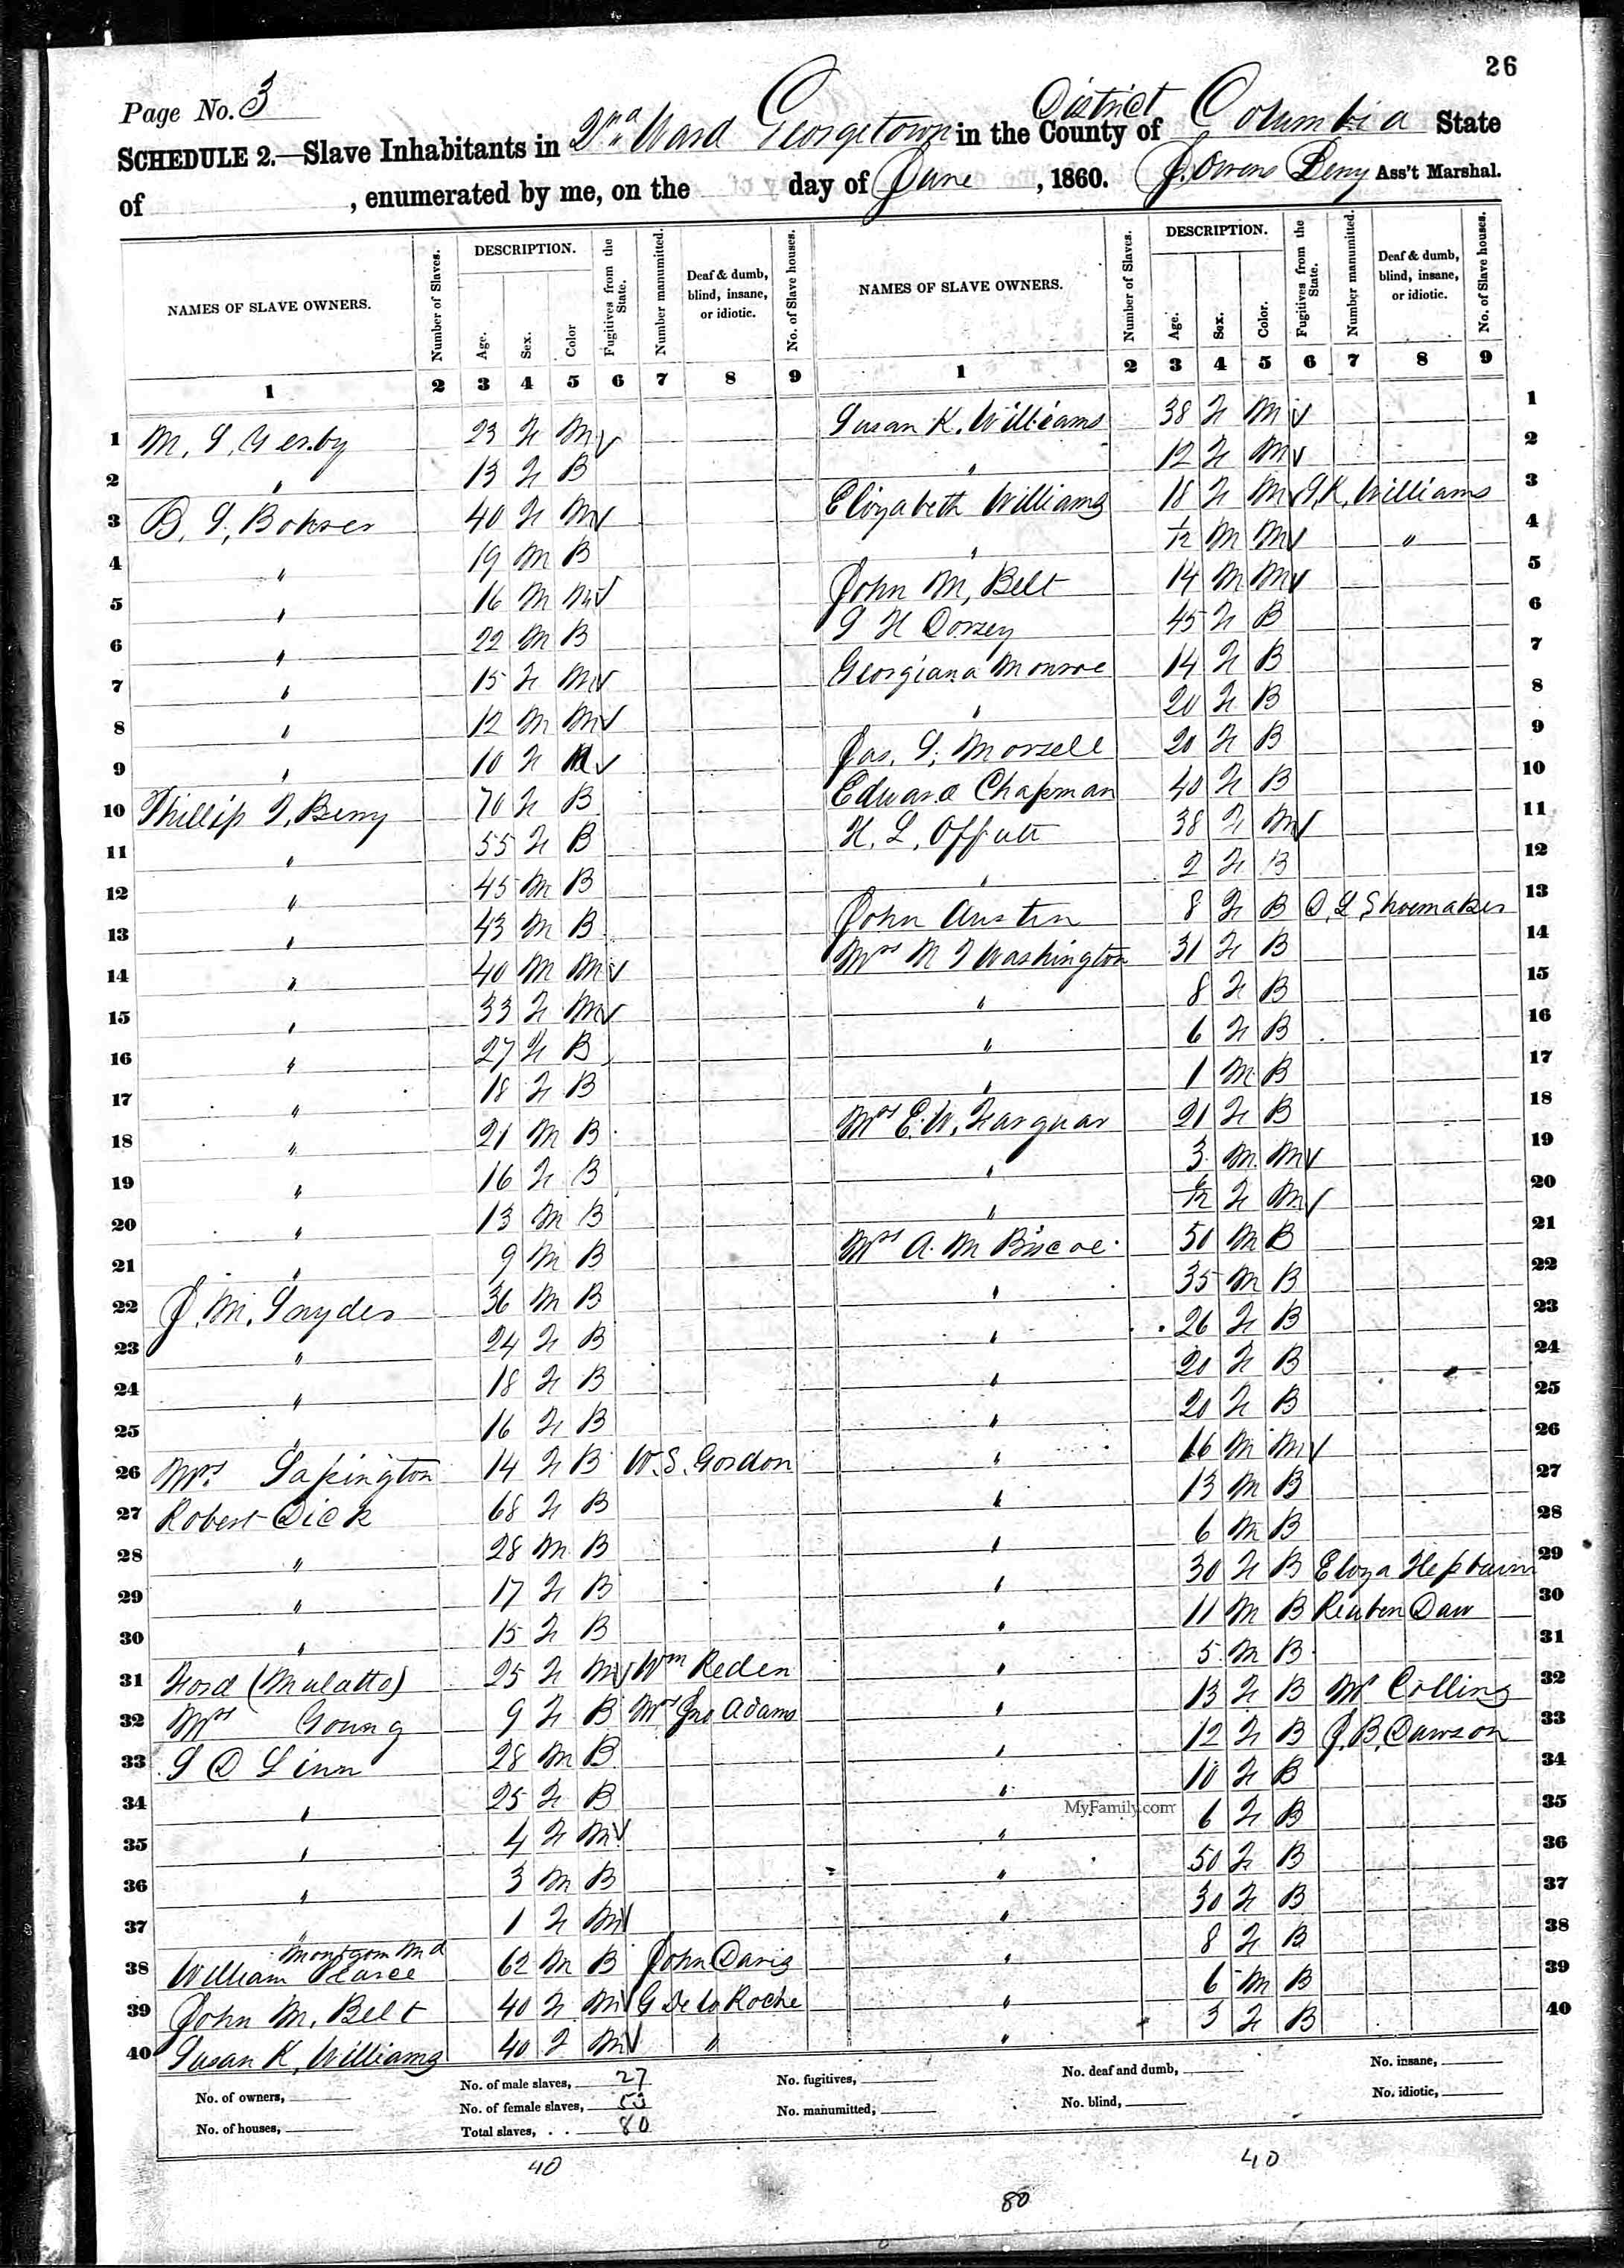 26
Page No. 3
SCHEDULE 2.—Slave Inhabitants in 2nd Ward Georgetown in the County of District Columbia State
of , enumerated by me, on the day of June , 1860. J. Owens Berry Ass't Marshal.
NAMES OF SLAVE OWNERS. Number of Slaves. DESCRIPTION. Age. Sex. Color Fugitives from the State. Number manumitted. Deaf & dumb, blind, insane, or idiotic. No. of Slave houses. NAMES OF SLAVE OWNERS. Number of Slaves. DESCRIPTION. Age. Sex. Color. Fugitives from the State. Number manumitted. Deaf & dumb, blind, insane, or idiotic. No. of Slave houses.
1 2 3 4 5 6 7 8 9 1 2 3 4 5 6 7 8 9
1 M. 23 F M √ Susan K. Williams 38 F M √ 1
2 " 13 F B " 12 F M √ 2
3 B. S. Bohrer 40 F M √ Elizabeth Williams 18 F M √ S. K. Williams 3
4 " 19 M B " 1/12 M M √ " 4
5 " 16 M M √ John M. Belt 14 M M √ 5
6 " 22 M B Dorsey 45 F B 6
7 " 15 F M √ Georgiana Monroe 14 F B 7
8 " 12 M M √ " 20 F B 8
9 " 10 F M √ Jas. S. Morsell 20 F B 9
10 Phillip T. Berry 70 F B Edward Chapman 40 F B 10
11 " 55 F B H. L. Offutt 38 F M √ 11
12 " 45 M B " 2 F B 12
13 " 43 M B John Austin 8 F B D. L Shoemaker 13
14 " 40 M M √ Mrs M Washington 31 F B 14
15 " 33 F M √ " 8 F B 15
16 " 27 F B " 6 F B 16
17 " 18 F B " 1 M B 17
18 " 21 M B Mrs E. W. Farquar 21 F B 18
19 " 16 F B " 3 M M √ 19
20 " 13 M B " /12 F M √ 20
21 " 9 M B Mrs A. M Biscoe 50 M B 21
22 J. M. Snyder 36 M B " 35 M B 22
23 " 24 F B " 26 F B 23
24 " 18 F B " 20 F B 24
25 " 16 F B " 20 F B 25
26 Mrs. Sapington 14 F B W. S. Gordon " 16 M M √ 26
27 Robert Dick 68 F B " 13 M B 27
28 " 28 M B " 6 M B 28
29 " 17 F B " 30 F B Eliza Hepburn 29
30 " 15 F B " 11 M B Reuben Daw 30
31 Ford (Mulatto) 25 F M √ Wm Reden " 5 M B 31
32 Mrs Young 9 F B Mrs Jno Adams " 13 F B Mr Collins 32
33 S D Linn 28 M B " 12 F B J. B. Dawson 33
34 " 25 F B " 10 F B 34
35 " 4 F M √ MyFamily.com " 6 F B 35
36 " 3 M B " 50 F B 36
37 " 1 F M √ " 30 F B 37
Montgom Md
38 William Pearce 62 M B John Davis " 8 F B 38
39 John M. Belt 40 F M √ G De la Roche " 6 M B 39
40 Susan K. Williams 40 F M √ " " 3 F B 40
No. of owners, No. of male slaves, 27 No. fugitives, No. deaf and dumb, No. insane,
No. of houses, No. of female slaves, 53 No. manumitted, No. blind, No. idiotic,
Total slaves, . . 80
40 40
80